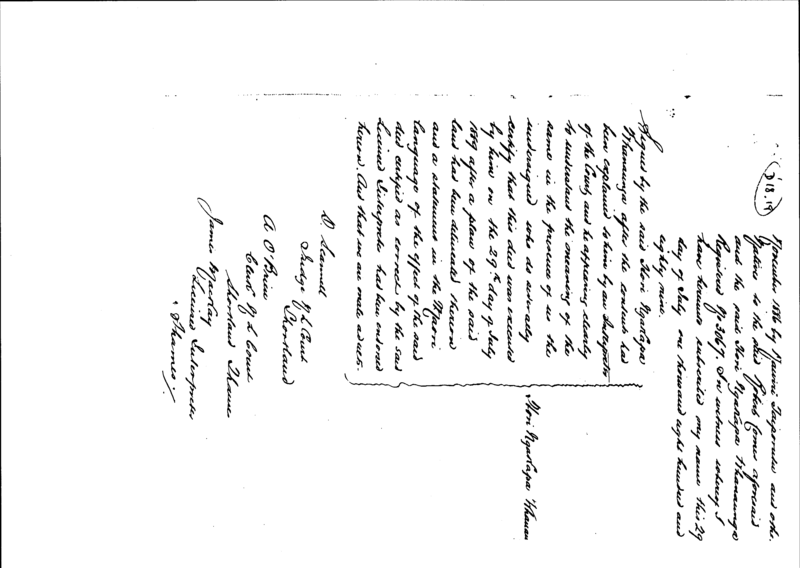 D 13.19
November 1886 by Maini Taipornutu and othe.
Option to the said Official Comr aforesaid
and the said Hori Ngatapa Whanaunga
Registered Of. 3067. In witness whereof I
have hereunto subscribed my name this 29
day of July one thousand eight hundred and
eighty nine.
Signed by the said Hori Ngatapa
Whanaunga after the contents had
been explained to him by an Interpreter
of the Court and he appearing clearly
to understand the meaning of the
same in the presence of us the
undersigned who do severally
certify that this deed was executed
by him on the 29th day of July
1889 after a plan of the said
land has been delineated thereon
and a statement in the Maori
language of the effect of the said
deed certified as correct by the said
Licensed Interpreter has been endorsed
hereon. And that we are male adults.
Hori Ngatapa Whanau
D. Scannell
Judge N L Court
Shortland
A O'Brien
Clerk N L Court
Shortland Thames
James Mackay
Licensed Interpreter
Thames